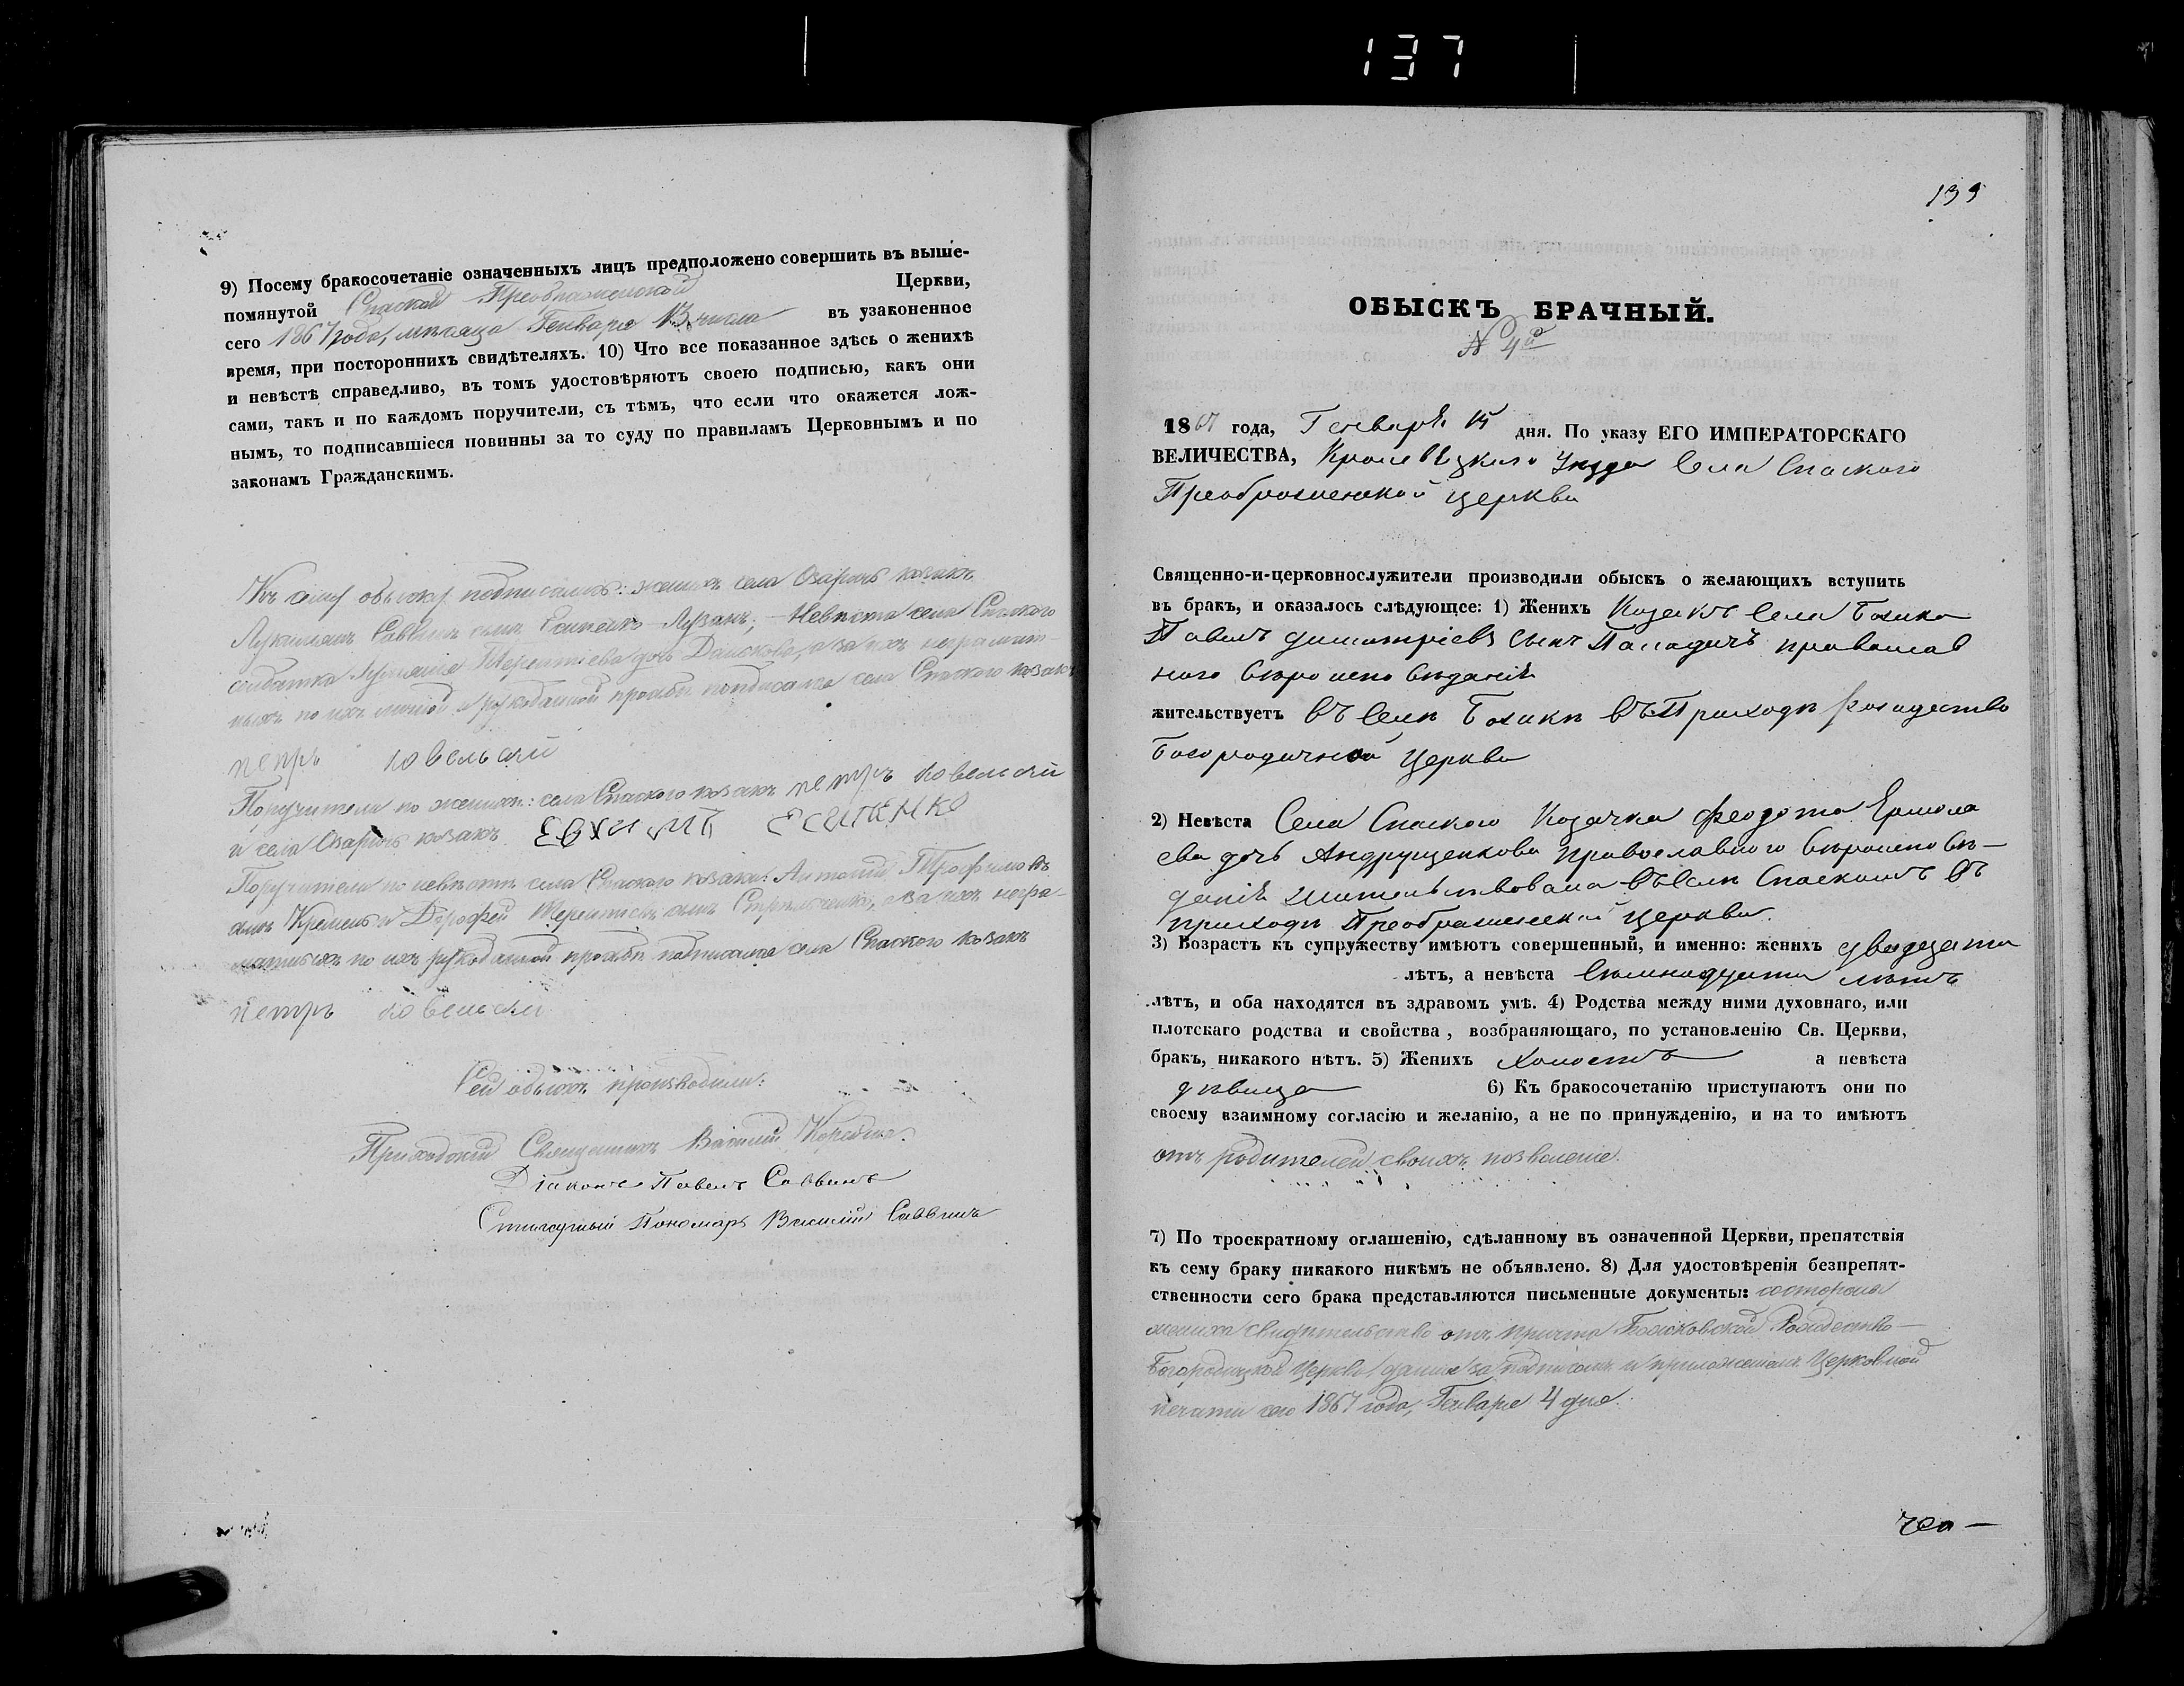 137
9) Посему бракосочетаніе означенныхъ лицъ предположено совершить въ выше-
помянутой Спаской Преображенской Церкви,
сего 1867 года, мѣсяца Генваря 13 числа въ узаконенное
время, при постороннихъ свидѣтеляхъ. 10) Что все показанное здѣсь о женихѣ
и невѣстѣ справедливо, въ томъ удостовѣряютъ своею подписью, какъ они
сами, такъ и по каждомъ поручители, съ тѣмъ, что если что окажется лож-
нымъ, то подписавшіеся повинны за то суду по правиламъ Церковнымъ и по
законамъ Гражданскимъ.
Къ сему обыску подписались: женихъ села Озаричъ козакъ
Саввинъ сынъ Лузанъ; Невѣста села Спаского
солдатка дочь а за ихъ неграмот-
ныхъ по ихъ личной и рукоданной прозьбѣ подписался села Спаского козакъ
петръ ковельский
Поручители по женихѣ: села Спаского козакъ петръ ковельский
и села Озаричъ козакъ ЕВХИМЪ ЕСИПЕНКО
Поручители по невѣстѣ села Спаского козаки: Антоній Трофимовъ
сынъ Кремень и Дорофей Терентіевъ сынъ а за ихъ негра-
мотныхъ по ихъ рукоданной прозьбѣ подписался села Спаского козакъ
петръ ковельский
Сей обыскъ производили:
Приходский Священникъ Василій
Діаконъ Павелъ Саввинъ
Пономарь Василій Саввинъ
139
ОБЫСКЪ БРАЧНЫЙ.
N 4й
1867 года, Генваря 15 дня. По указу ЕГО ИМПЕРАТОРСКАГО
ВЕЛИЧЕСТВА, Кролевецкаго Уезда Села Спаского
Преображенской церкви
Священно-и-церковнослужители производили обыскъ о желающихъ вступить
въ бракъ, и оказалось слѣдующее: 1) Женихъ Козакъ Села
Павелъ Димитріевъ Сынъ православ
ного вѣроисповѣданія
жительствуетъ въ Селѣ въ Приходѣ Рождество
Богородичной Церкви
2) Невѣста Села Спаского Козачка Феодота Ермола
ева дочь Андрущенкова православного вѣроисповѣ-
данія жительствовала въ Селѣ Спаскомъ въ
приходѣ Преображенской церкви.
3) Возрастъ къ супружеству имѣютъ совершенный, и именно: женихъ двадцати
лѣтъ, а невѣста семнадцати лѣтъ
лѣтъ, и оба находятся въ здравомъ умѣ. 4) Родства между ними духовнаго, или
плотскаго родства и свойства, возбраняющаго, по установленію Св. Церкви,
бракъ, никакого нѣтъ. 5) Женихъ Холостъ а невѣста
дѣвица 6) Къ бракосочетанію приступаютъ они по
своему взаимному согласію и желанію, а не по принужденію, и на то имѣютъ
отъ родителей своихъ позволеніе.
7) По троекратному оглашенію, сдѣланному въ означенной Церкви, препятствія
къ сему браку никакого никѣмъ не объявлено. 8) Для удостовѣренія безпрепят-
ственности сего брака представляются письменные документы: состороны
жениха свидѣтельство отъ причта Рождество-
Богородицкой Церкви, данное за подписомъ и приложеніемъ Церковной
печати сего 1867 года, Генваря 4 дня.